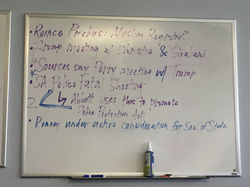 Reince Priebus: Muslim Registry?
Trump meeting w/ Christie & Giuliani
Sources say Perry meeting w/ Trump
SA Police Fatal Shooting
2 Abbott uses this to promote
Police Protection Act
Romney under active consideration for Sec of State